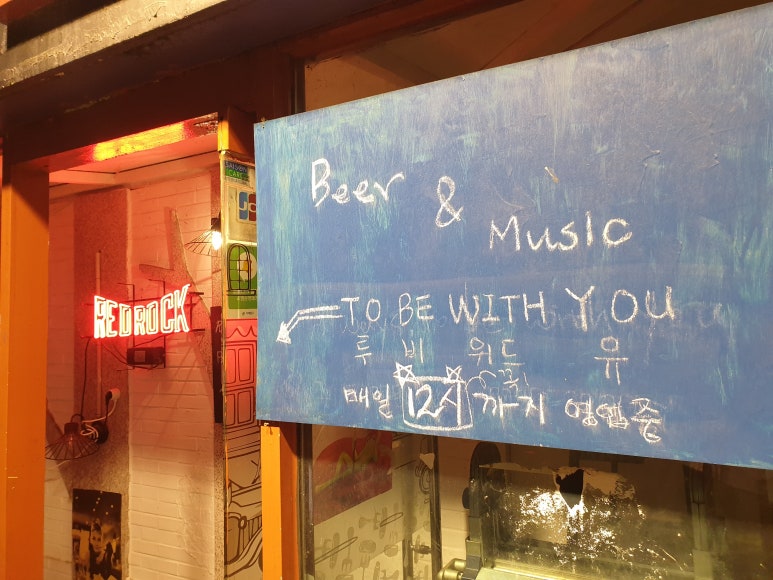 REDROCK
Beer & Music
TO BE WITH YOU
루 비 위드 유
매일 12시까지 영업중